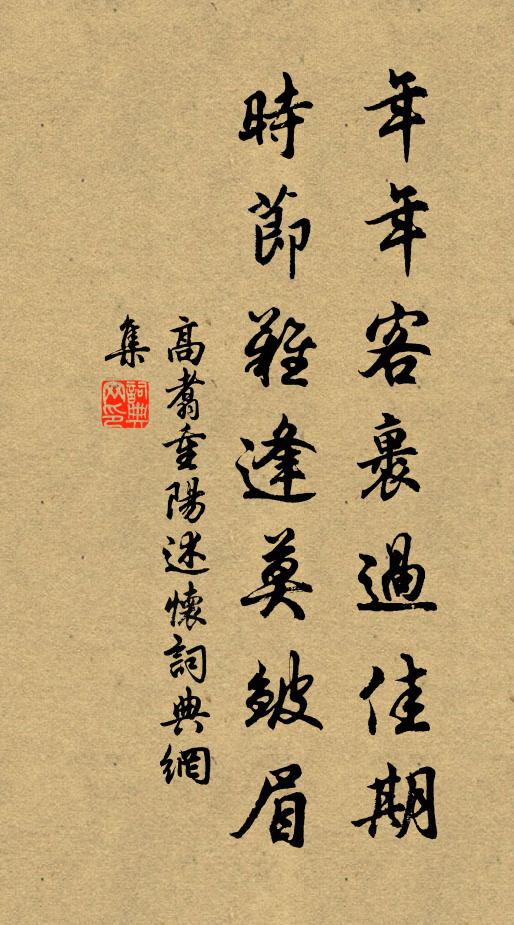 年年客裏過佳期
時節難逢莫皺眉
高翥重陽述懷詞典網
集
詞典網印